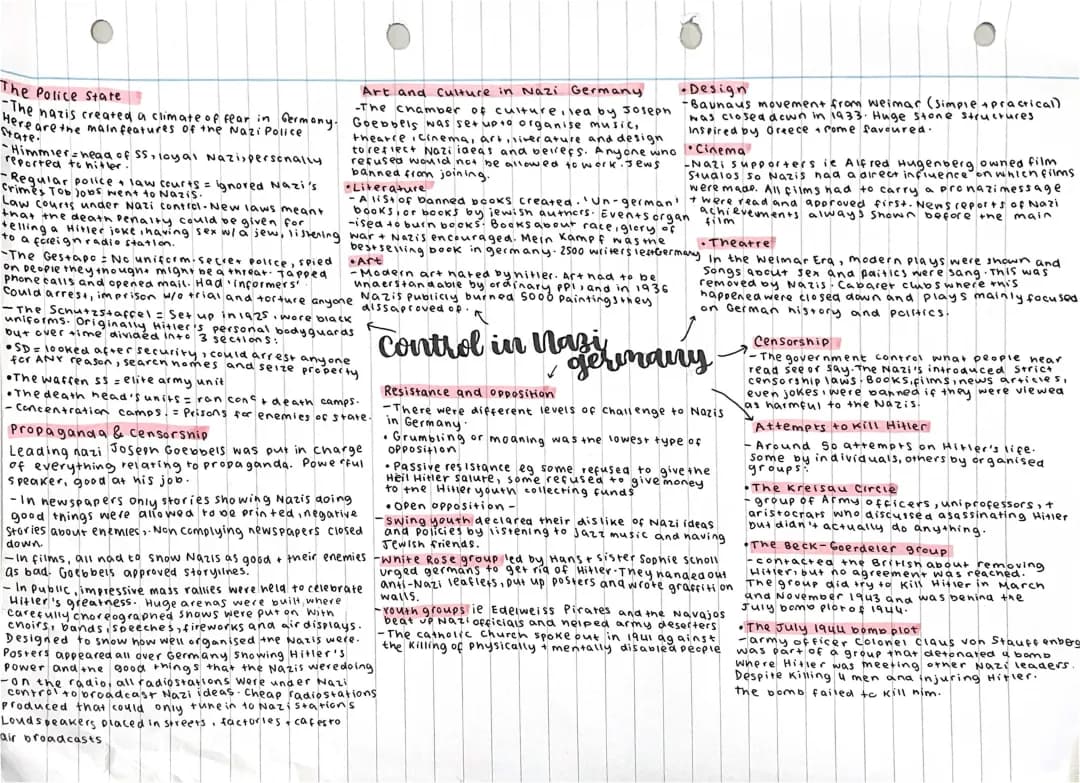 The Police State
-The nazis created a climate of fear in Germany.
Here are the main features of the Nazi Police
State.
-Himmler = head of SS, loyal Nazi, personally
reported to hitler.
-Regular police + law courts = ignored Nazi's
crimes Top jobs went to Nazis.
Law courts under Nazi control. New laws meant
that the death penalty could be given for
telling a Hitler joke, having sex w/ a jew, listening
to a foreign radio station.
-The Gestapo = No uniform. secret police, spied
on people they thought might be a threat. Tapped
phone calls and opened mail. Had 'informers'.
Could arrest, imprison w/o trial and torture anyone
-The Schutzstaffel = Set up in 1925, wore black
uniforms. Originally Hitler's personal bodyguards
but over time divided into 3 sections:
•SD = looked after security, could arrest anyone
for ANY reason, search homes and seize property
•The waffen SS = elite army unit
•The death head's units = ran conc + death camps.
-Concentration camps. = Prisons for enemies of state.
Propaganda & Censorship
Leading nazi Joseph Goebbels was put in charge
of everything relating to propaganda. Powerful
speaker, good at his job.
- In newspapers only stories showing Nazis doing
good things were allowed to be printed, negative
stories about enemies. Non complying newspapers closed
down.
-In films, all had to show Nazis as good + their enemies
as bad. Goebbels approved storylines.
- In Public, impressive mass rallies were held to celebrate
Hitler's greatness. Huge arenas were built, where
carefully choreographed shows were put on with
choirs, bands, speeches, fireworks and air displays.
Designed to show how well organised the Nazis were.
Posters appeared all over Germany showing Hitler's
power and the good things that the Nazis were doing
-on the radio, all radio stations were under Nazi
control to broadcast Nazi ideas. Cheap radio stations
produced that could only tune in to Nazi stations
Loudspeakers placed in streets, factories + cafes to
air broadcasts
Art and Culture in Nazi Germany
-The chamber of culture, led by Joseph
Goebbels was set up to organise music,
theatre, cinema, art, literature and design
to reflect Nazi ideas and beliefs. Anyone who
refused would not be allowed to work. Jews
banned from joining.
•Literature
-A list of banned books created. 'Un-german'
books, or books by jewish authors. Events organ
-ised to burn books. Books about race, glory of
war + Nazis encouraged. Mein Kampf was the
bestselling book in germany. 2500 writers left Germany
•Art
-Modern art hated by hitler. Art had to be
understandable by ordinary PPl, and in 1936
Nazis publicly burned 5000 Paintings they
dissaproved of.
•Design
-Bauhaus movement from Weimar (simple + practical)
was closed down in 1933. Huge stone structures
inspired by Greece + Rome favoured.
•Cinema
-Nazi supporters ie Alfred Hugenberg owned film
studios so Nazis had a direct influence on which films
were made. All films had to carry a pro nazi message
+ were read and approved first. News reports of Nazi
achievements always shown before the main
film
•Theatre
In the Weimar Era, modern plays were shown and
songs about sex and politics were sang. This was
removed by Nazis. Cabaret clubs where this
happened were closed down and plays mainly focused
on German history and politics.
Control in Nazi
germany
Resistance and opposition
-There were different levels of challenge to Nazis
in Germany.
• Grumbling or moaning was the lowest type of
opposition
• Passive resistance eg some refused to give the
Heil Hitler salute, some refused to give money
to the Hitler youth collecting funds
• Open opposition -
- Swing youth declared their dislike of Nazi ideas
and policies by listening to Jazz music and having
Jewish friends.
- White Rose group led by Hans + sister Sophie Scholl
urged germans to get rid of Hitler. They handed out
anti-Nazi leaflets, put up posters and wrote graffiti on
walls.
- Youth groups ie Edelweiss Pirates and the Navajos
beat up Nazi officials and helped army deserters
-The catholic Church spoke out in 1941 against
the killing of physically + mentally disabled people
Censorship
-The government control what people hear
read see or say. The Nazi's introduced strict
censorship laws. Books, films, news articles,
even jokes, were banned if they were viewed
as harmful to the Nazis.
Attempts to kill Hitler
-Around 50 attempts on Hitler's life.
some by individuals, others by organised
groups:
•The Kreisau Circle
-group of Army officers, uni professors, +
aristocrats who discussed asassinating Hitler
but didn't actually do anything.
•The Beck-Goerdeler group
-contacted the British about removing
Hitler, but no agreement was reached.
The group did try to kill Hitler in March
and November 1943 and was behind the
July bomb plot of 1944.
•The July 1944 bomb plot
-army officer Colonel Claus von Stauffenberg
was part of a group that detonated a bomb
where Hitler was meeting other Nazi leaders.
Despite killing 4 men and injuring Hitler.
the bomb failed to kill him.